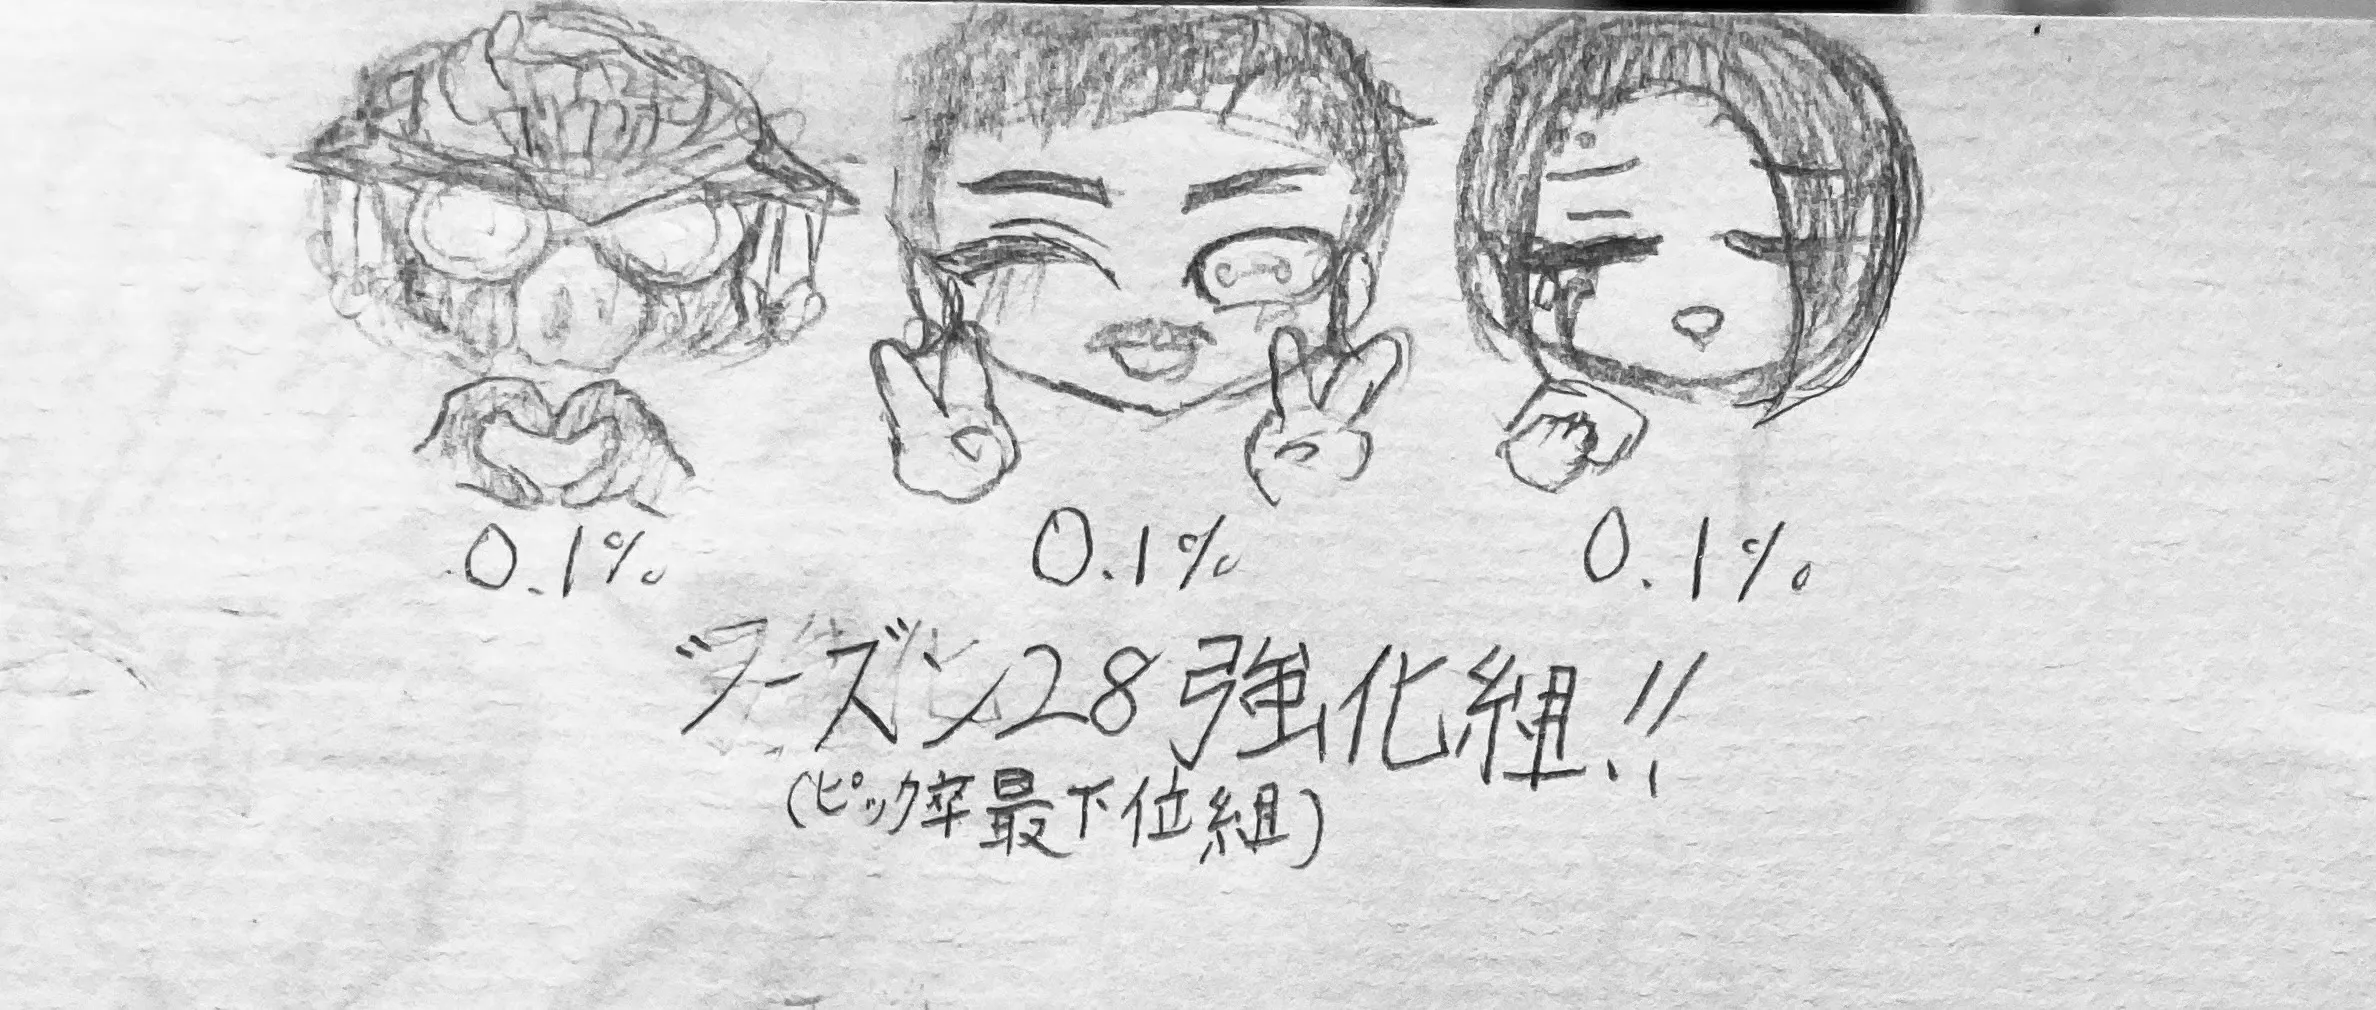 0.1% 0.1% 0.1%
シーズン28強化組!!
(ピック率最下位組)